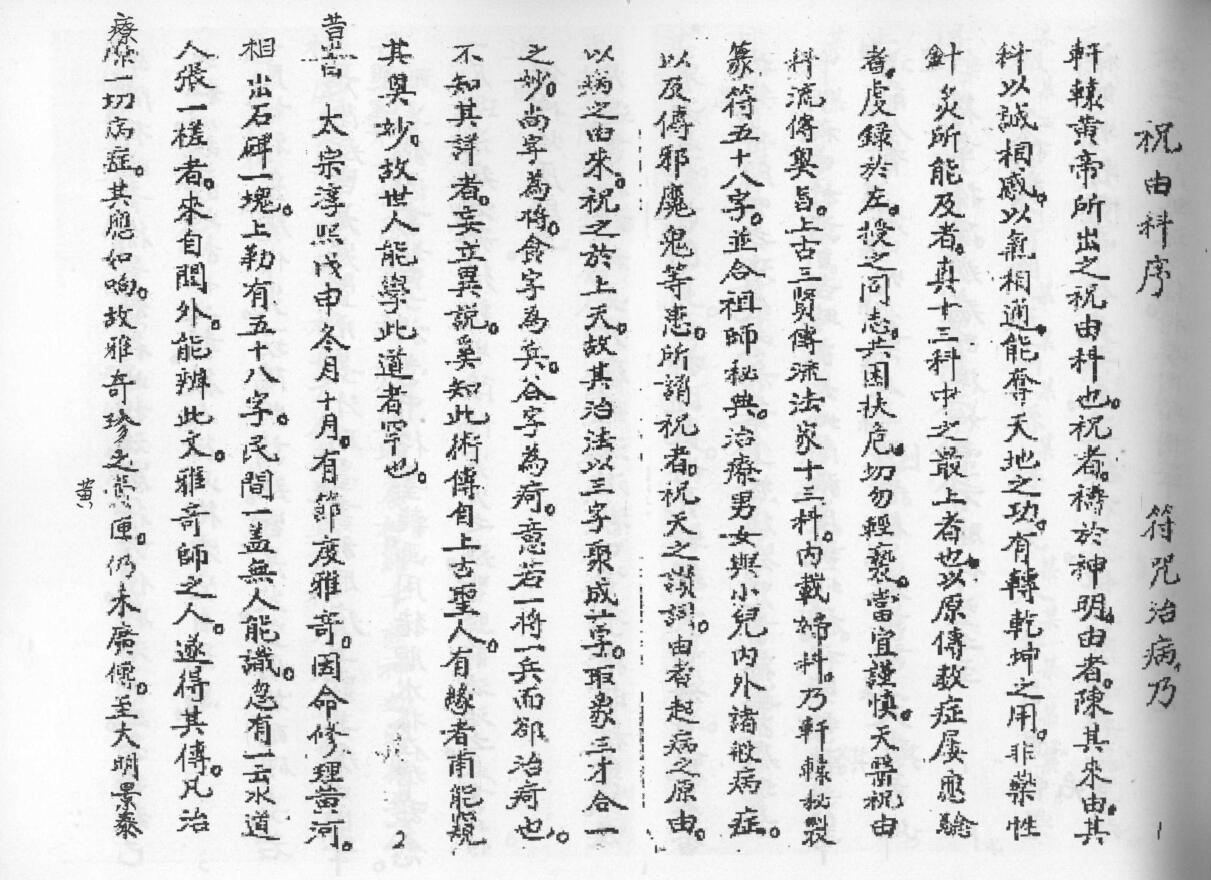 祝由科序　符咒治病。乃
軒轅黃帝所出之祝由科也。祝者。禱於神明。由者。陳其來由。其
科以誠相感。以氣相通。能奪天地之功。有轉乾坤之用。非藥性
針灸所能及者。真十三科中之最上者也。以原傳救症屡愿驗
者。虔錄於左。授之同志。共困扶危。切勿輕褻。當宜謹慎。天醫祝由
科流傳奧旨。上古三賢傳流法家十三科。內載婦科。乃軒轅秘製
篆符五十八字。並合祖師秘典。治療男女與小兒內外諸般病症。
以及傳邪魔鬼等患。所謂祝者。祝天之讚詞。由者起病之原由。
1
以病之由來。祝之於上天。故其治法以三字聚成一字。取象三才合一
之妙。尚字為將。食字為兵。合字為疴。意若一將一兵而卻治疴也。
不知其詳者。妄立異說。奚知此術傳自上古聖人。有緣者甯能窺
其奧妙。故世人能學此道者罕也。
昔昔太宗淳熙戊申冬月十月。有節度雅奇。因命修理黃河。
相出石碑一塊。上勒有五十八字。民間一盖無人能識。忽有一云水道
人張一槎者。來自閫外。能辨此文。雅奇師之人。遂得其傳。凡治
療際一切病症。其應如响。故雅奇珍之黃匣。仍未廣傳。至大明景泰
黃
2